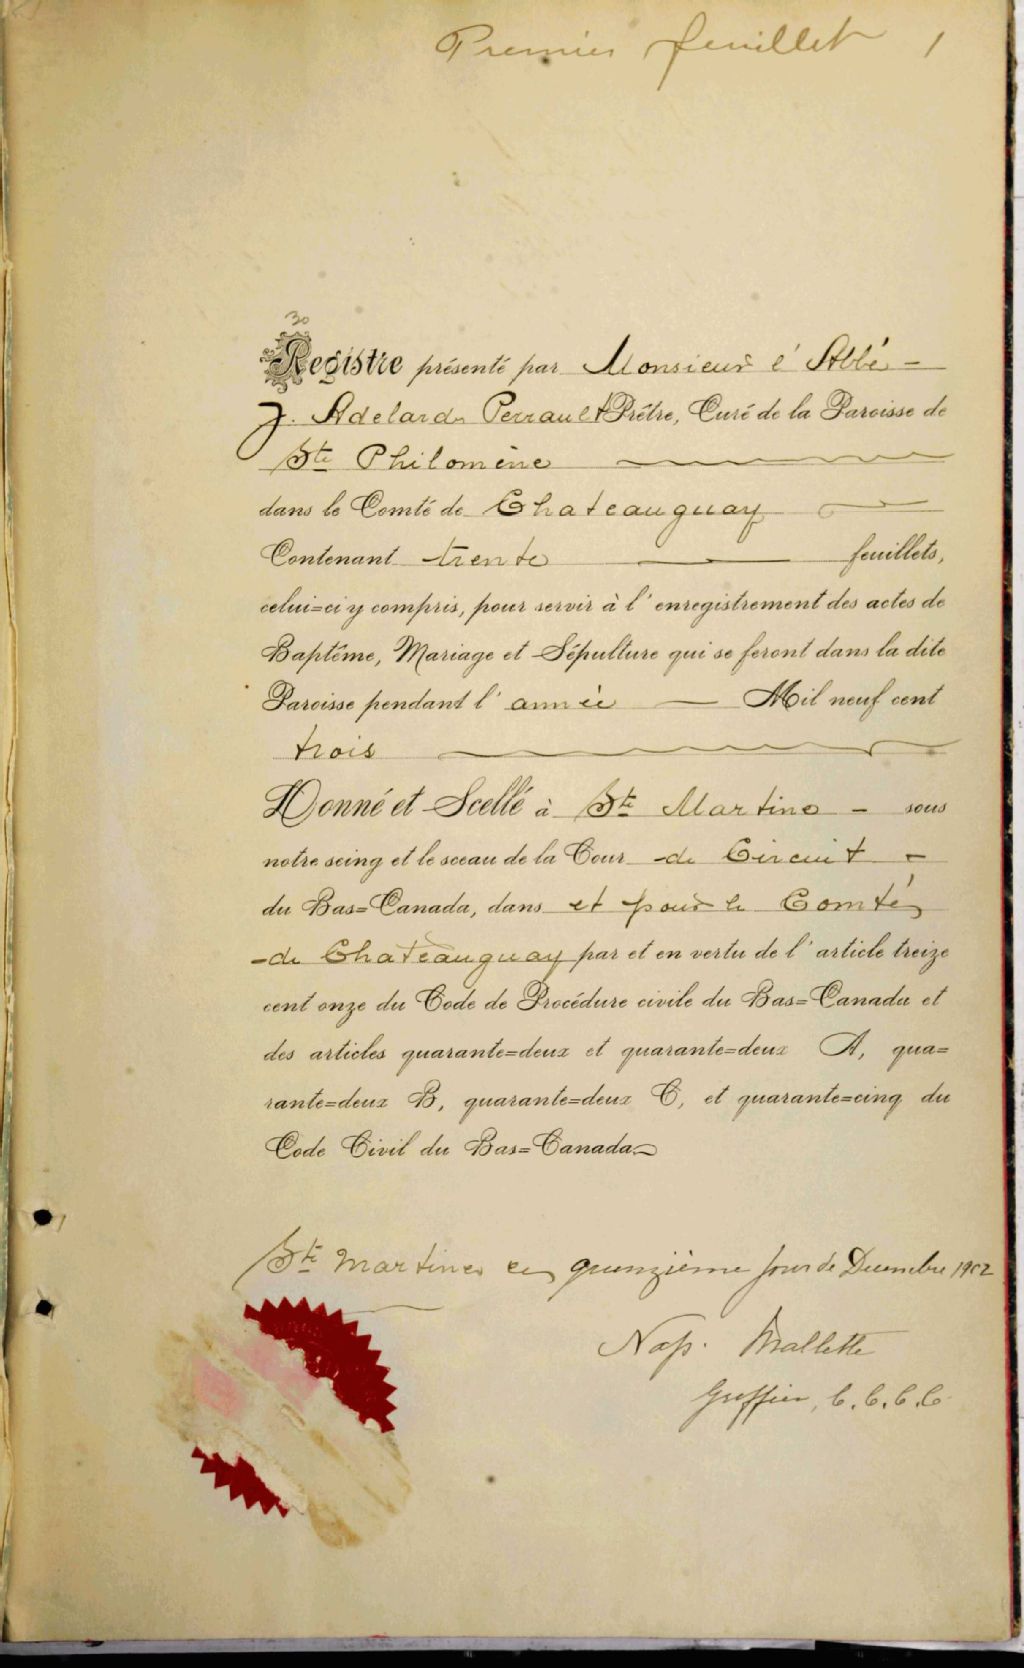 Premier feuillet 1
30
Registre présenté par Monsieur l'Abbé –
J. Adelard Perrault Prêtre, Curé de la Paroisse de
Ste Philomène
dans le Comté de Chateauguay
Contenant trente feuillets,
celui=ci y compris, pour servir à l'enregistrement des actes de
Baptême, Mariage et Sépulture qui se feront dans la dite
Paroisse pendant l'année — Mil neuf cent
trois
Donné et Scellé à Ste Martine – sous
notre seing et le sceau de la Cour de Circuit –
du Bas=Canada, dans et pour le Comté
de Chateauguay par et en vertu de l'article treize
cent onze du Code de Procédure civile du Bas=Canada et
des articles quarante=deux et quarante=deux A, qua=
rante=deux B, quarante=deux C, et quarante=cinq du
Code Civil du Bas=Canada
Ste Martine ce quinzième jour de Decembre 1902
Nap. Mallette
Greffier, C. C. C. C.